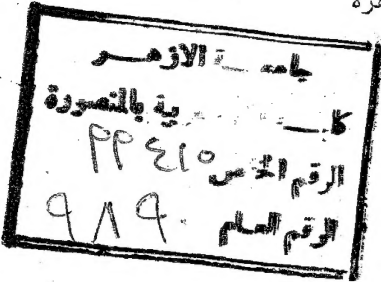 جامعة الازهر
كلية بالمنصورة
الرقم الخاص ٢٢٤١٥
الرقم العام ٩٨٩